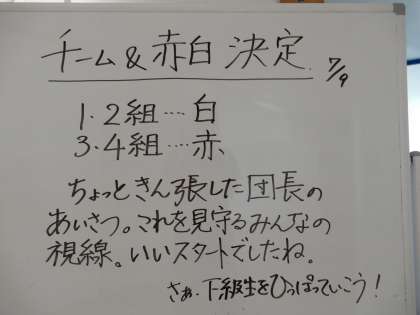 チーム&赤白 決定
7/9
1・2組…白
3・4組…赤
ちょっときん張した団長の
あいさつ。これを見守るみんなの
視線。いいスタートでしたね。
さぁ、下級生をひっぱっていこう!